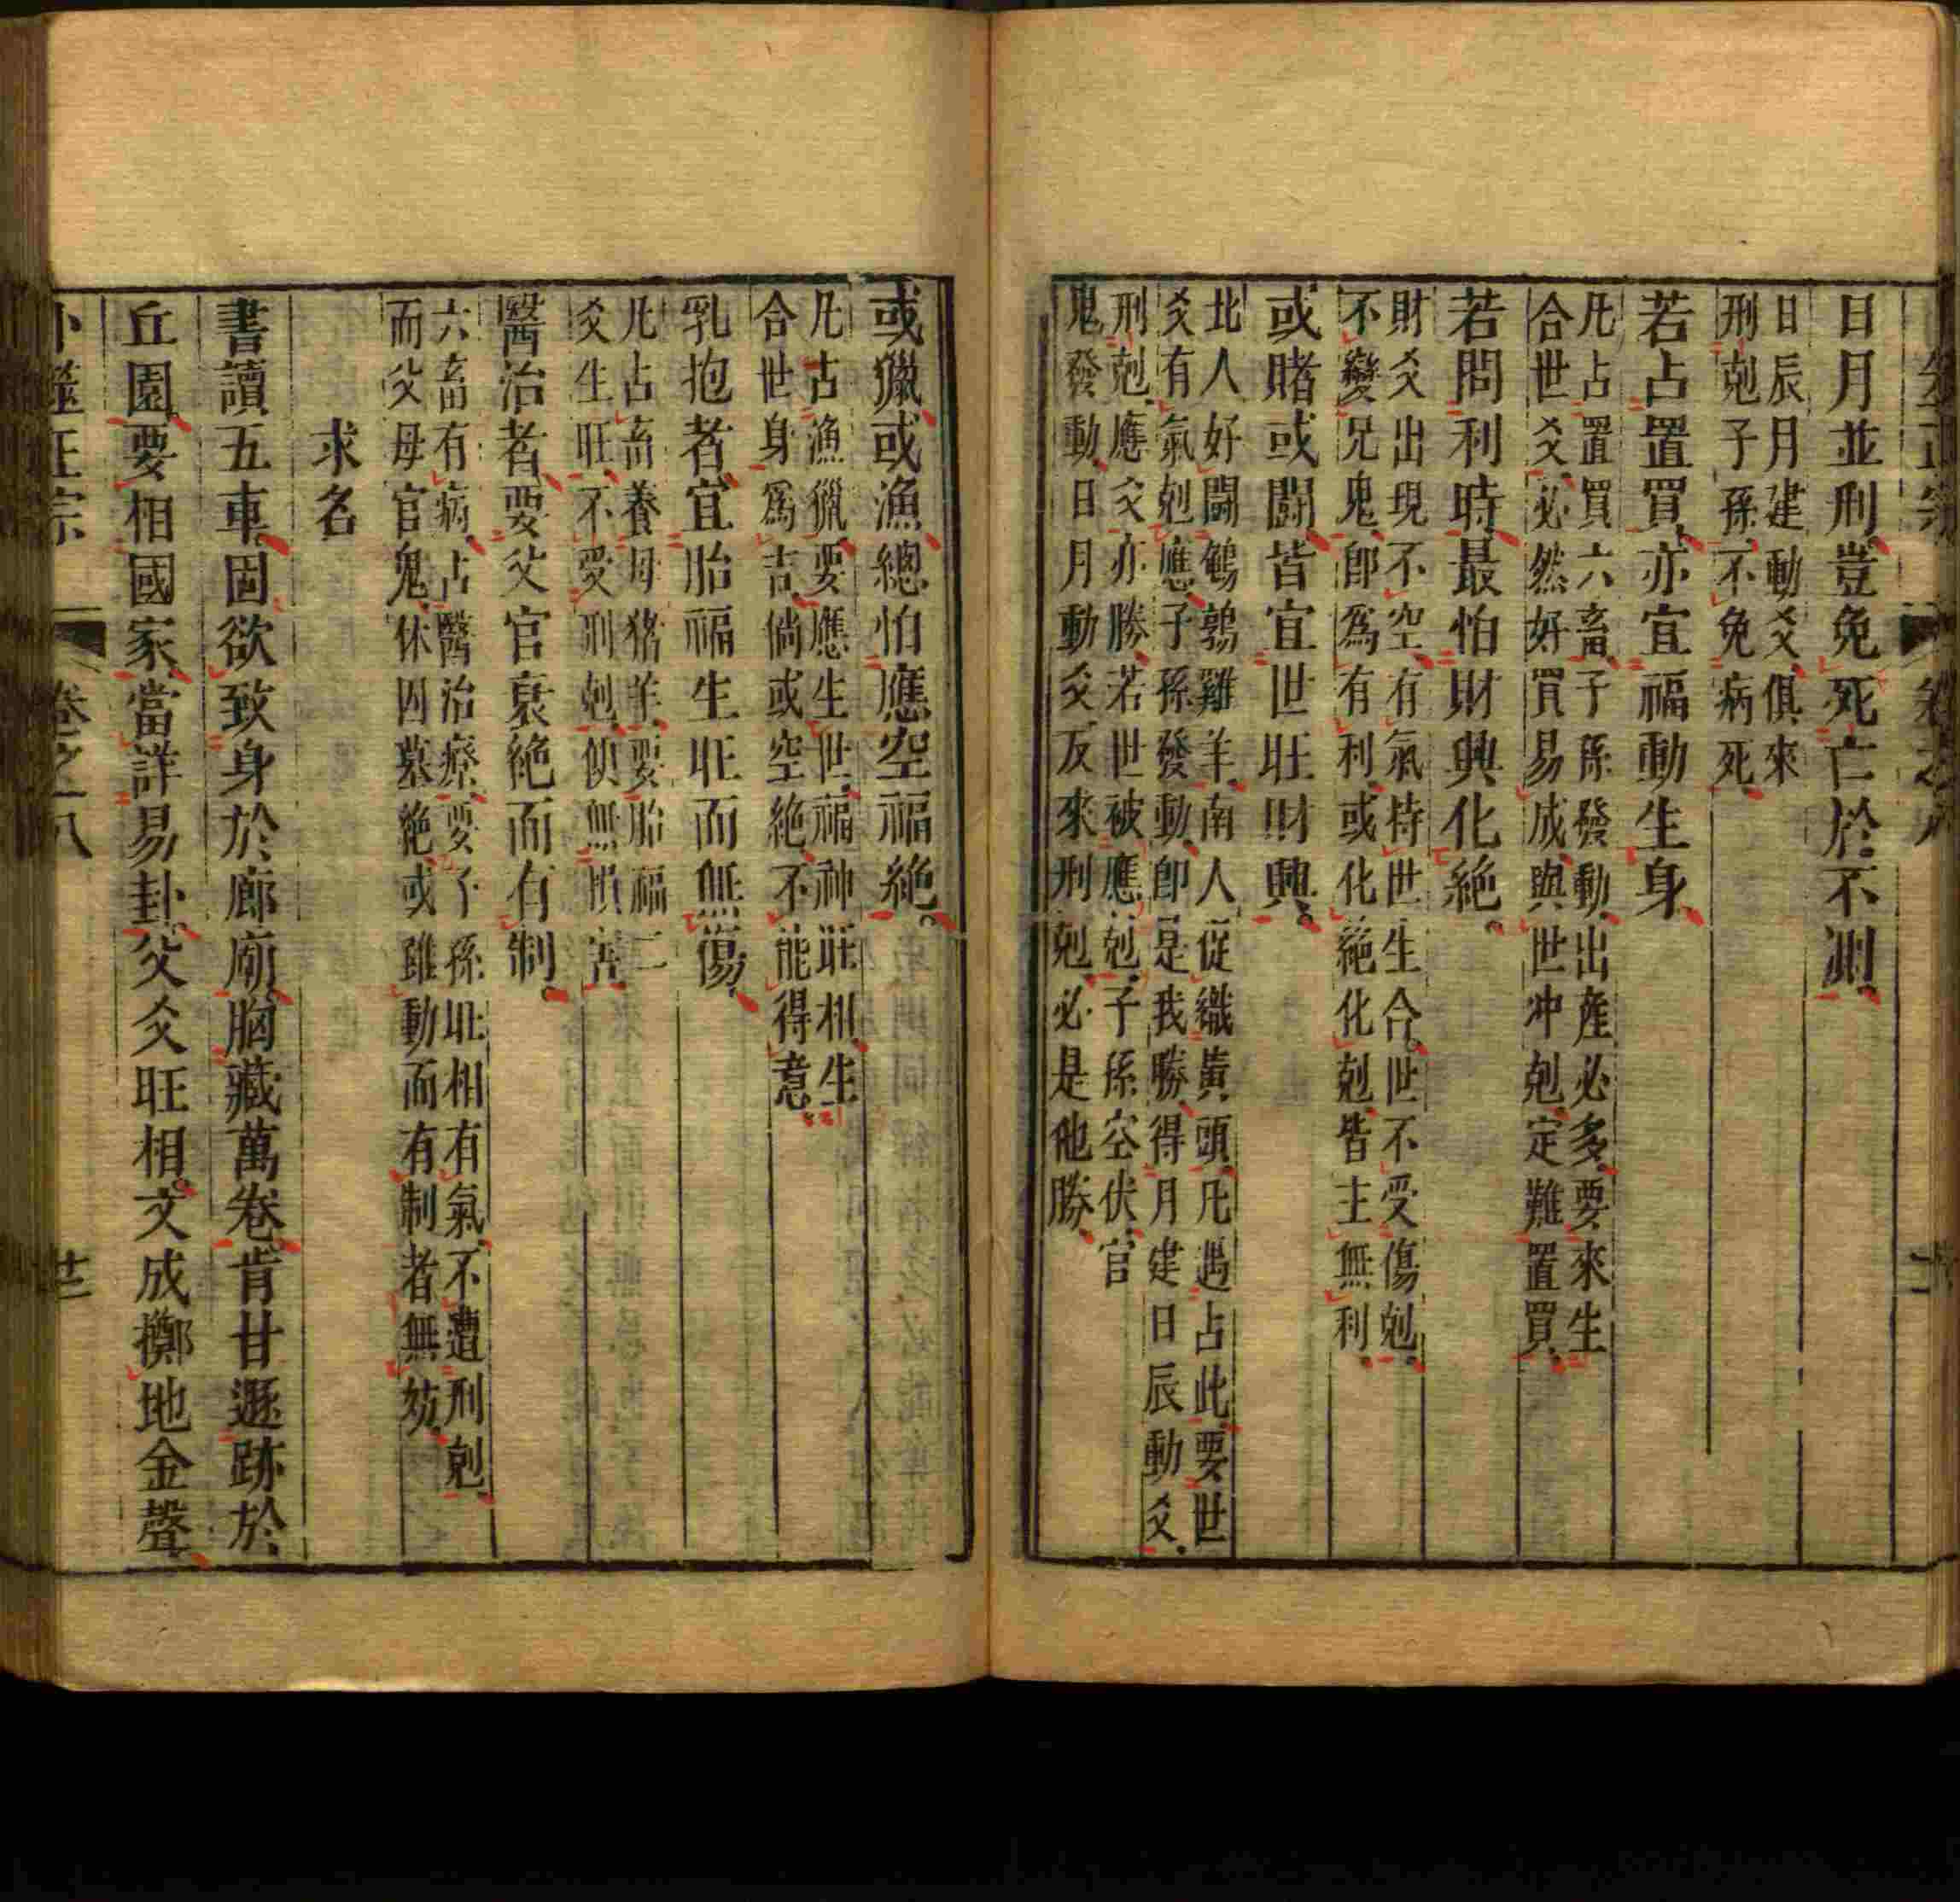 日月並刑豈免死亡於不測
日辰月建動爻俱來
刑剋子孫不免病死
若占置買亦宜福動生身
凡占置買六畜子孫發動出產必多要來生
合世爻必然好買易成與世冲剋定難置買
若問利時最怕財興化絶
財爻出現不空有氣持世生合世不受傷剋
不變兄鬼卽爲有利或化絕化剋皆主無利
或賭或鬪皆宜世旺財興
北人好鬪鵪鶉雞羊南人促織黃頭凡遇占此要世
爻有氣剋應子孫發動卽是我勝得月建日辰動爻
刑剋應爻亦勝若世被應剋子孫空伏官
鬼發動日月動爻反來刑剋必是他勝
或獵或漁總怕應空福絶
凡占漁獵要應生世福神旺相生
合世身爲吉倘或空絶不能得意
乳抱者宜胎福生旺而無傷
凡占畜養母猪羊要胎福二
爻生旺不受刑剋便無損害
醫治者要父官衰絶而有制
六畜有病占醫治療要子孫旺相有氣不遭刑剋
而父母官鬼休囚墓絶或雖動而有制者無妨
求名
書讀五車固欲致身於廊廟胸藏萬卷肯甘遯跡於
丘園要相國家當詳易卦父爻旺相文成擲地金聲
卜筮正宗 卷之八 廿三